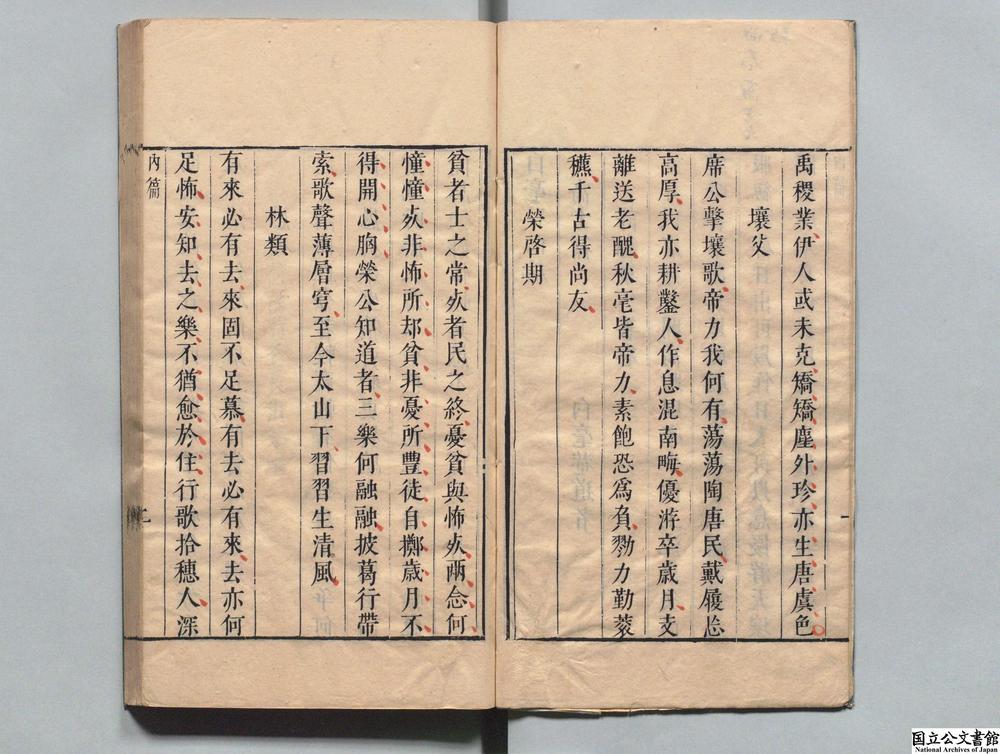 禹稷業伊人或未克矯矯塵外珍亦生唐虞色
壤父
席公擊壤歌帝力我何有蕩蕩陶唐民戴履忘
高厚我亦耕鑿人作息混南畮優游卒歲月支
離送老醜秋毫皆帝力素飽恐爲負勠力勤蔉
穮千古得尚友
榮啓期
貧者士之常死者民之終憂貧與怖死兩念何
憧憧死非怖所却貧非憂所豐徒自擲歲月不
得開心胸榮公知道者三樂何融融披葛行帶
索歌聲薄層穹至今太山下習習生清風
林類
有來必有去來固不足慕有去必有來去亦何
足怖安知去之樂不猶愈於住行歌拾穗人深
內篇
國立公文書館
National Archives of Japan